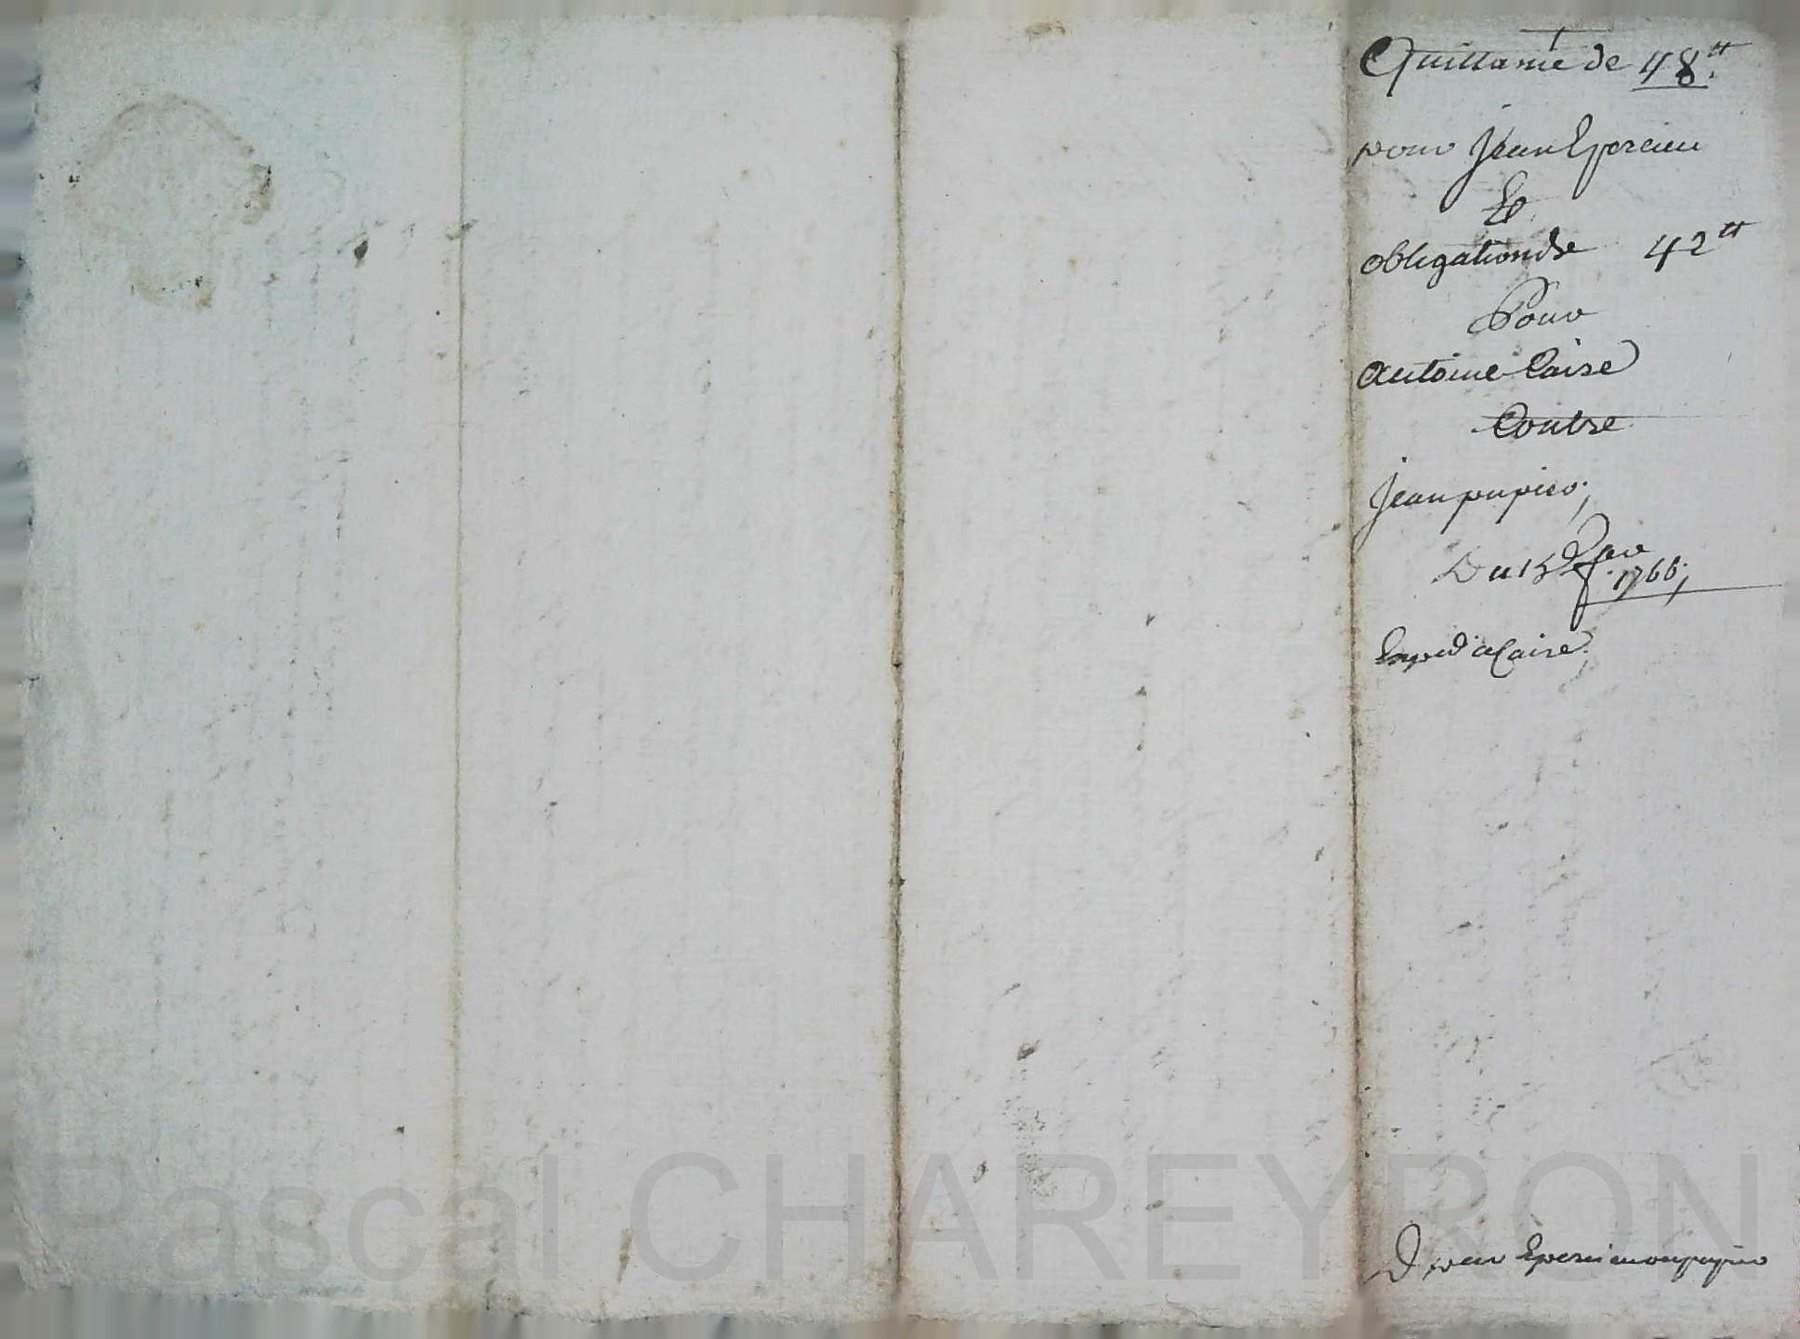 Quittance de 48ᵗᵗ
pour Jean Epercieu
Et
obligation de 42ᵗᵗ
Pour
Antoine Caire
Contre
Jean pupier,
Du 15 1766,
Exped a Caire,
Pascal CHAREYRON